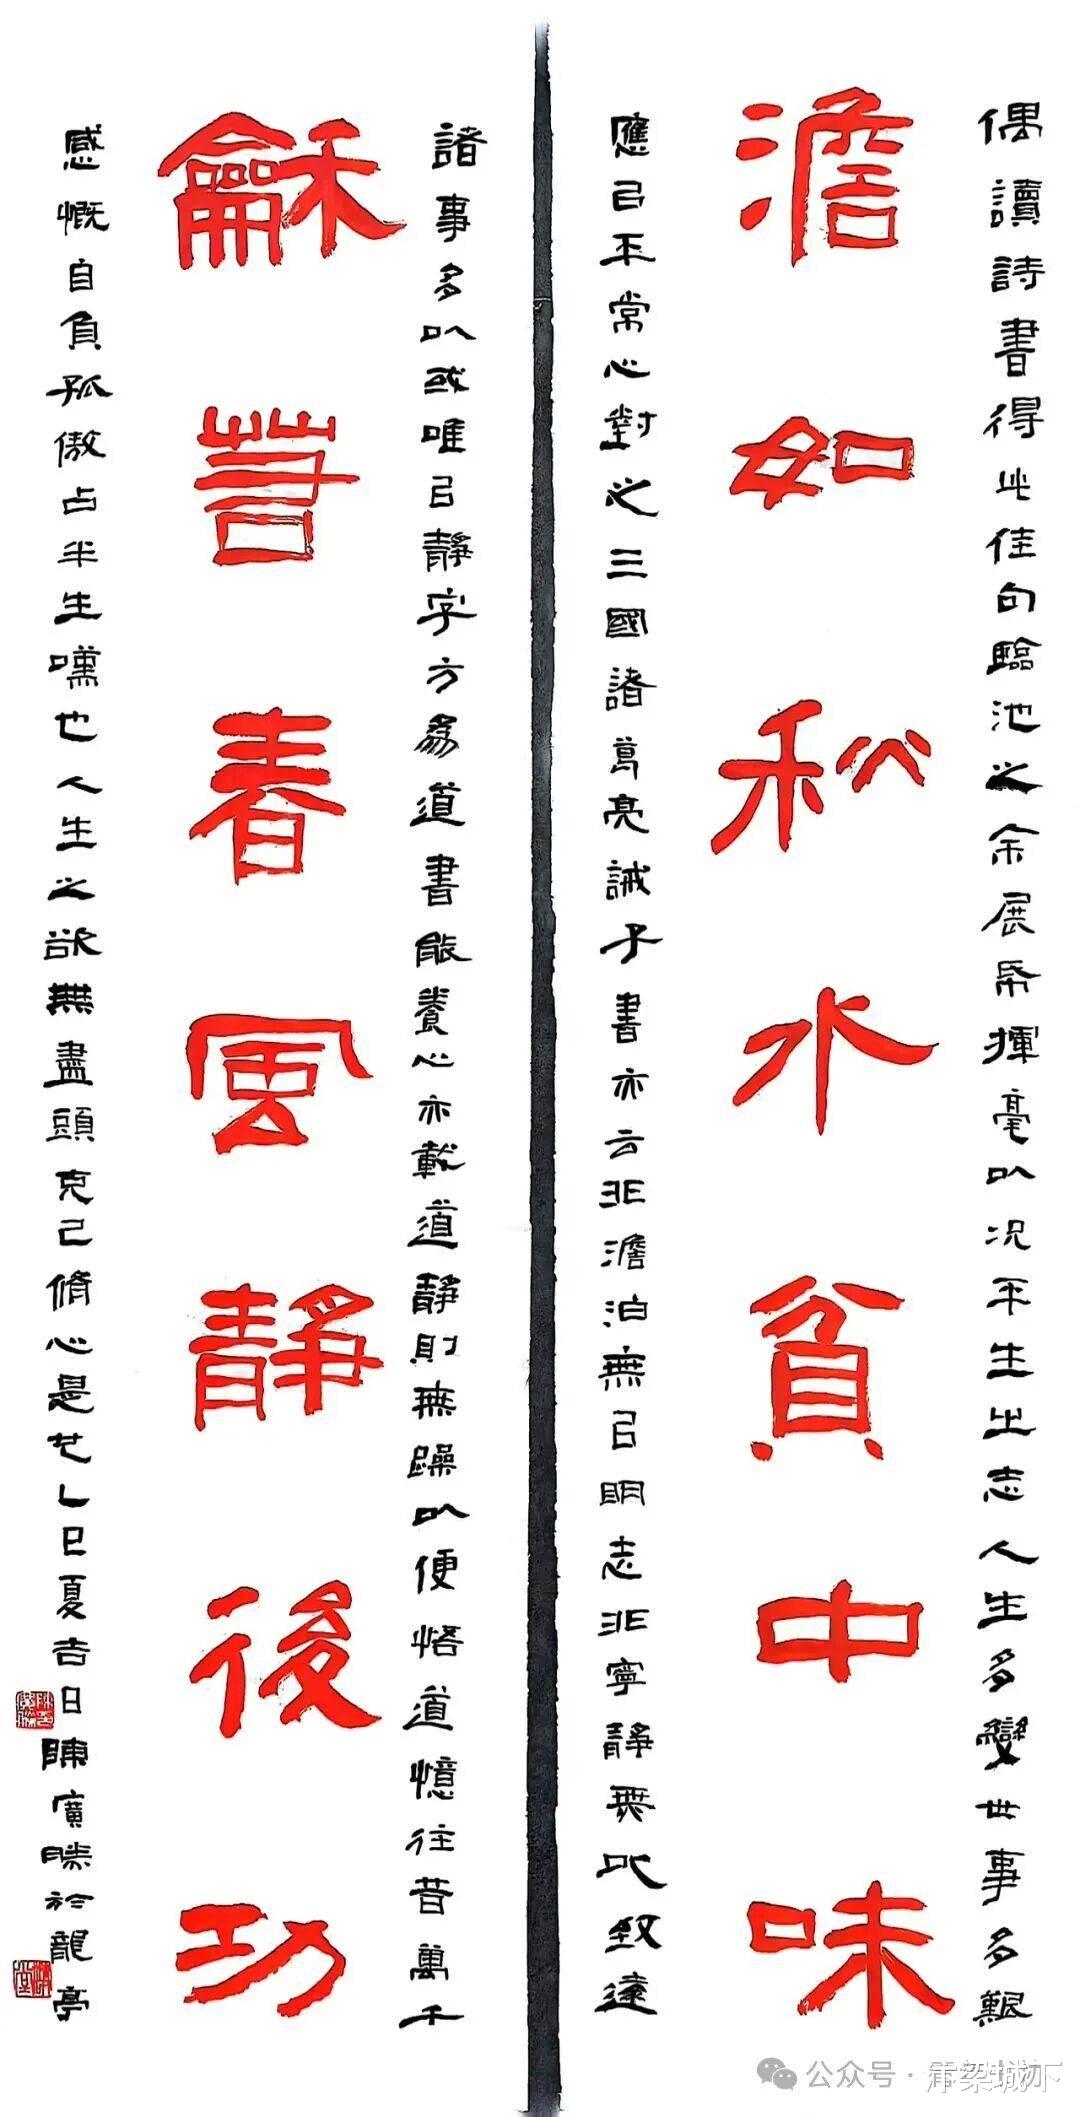 偶讀詩書得此佳句臨池之余展帋揮毫㕥况平生之志人生多變世事多艱
澹如秋水貧中味
應㠯平常心對之三國諸葛亮誡子書亦云非澹泊無㠯明志非寧靜無㕥致遠
諸事多㕥或唯㠯靜字方為道書能養心亦載道靜則無躁㕥便悟道憶往昔萬千
龢若春風靜後功
感慨自負孤傲占半生嘆也人生之欲無盡頭克己脩心是也乙巳夏吉日陳廣勝於龍亭
公众号 · 汴梁城下